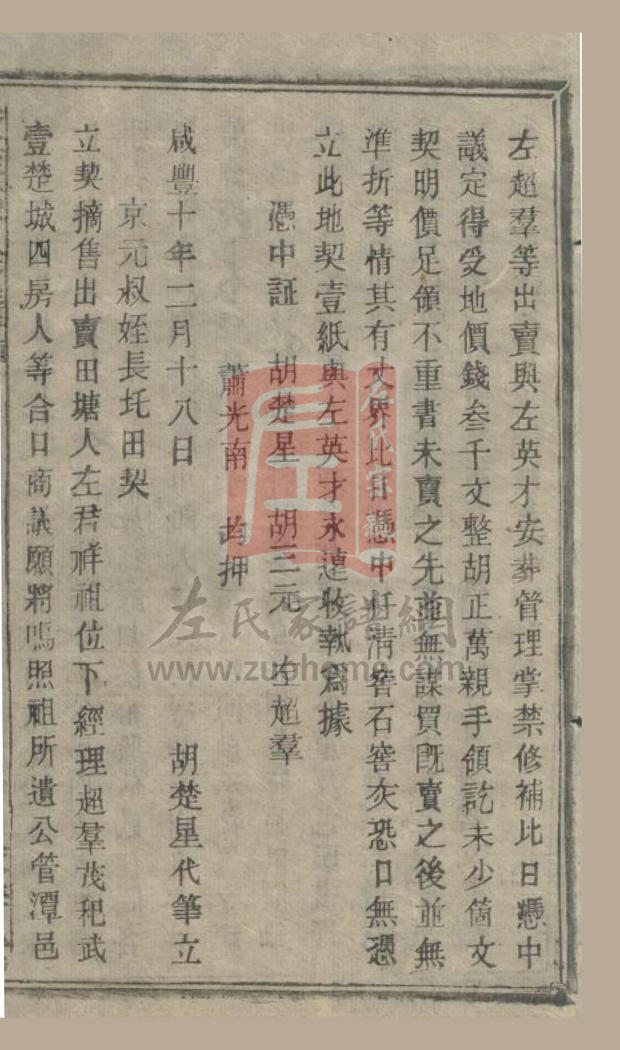 左超羣等出賣與左英才安葬管理掌禁修補比日憑中
議定得受地價錢叁千文整胡正萬親手領訖未少箇文
契明價足領不重書未賣之先並無謀買旣賣之後並無
準折等情其有丈界比日憑中釘清窖石窖灰恐口無憑
立此地契壹紙與左英才永遠收執爲據
憑中証 胡楚星 胡三元 左超羣
蕭光南 均押
咸豐十年二月十八日 胡楚星代筆立
京元叔姪長圫田契
立契摘售出賣田塘人左君祥祖位下經理超羣茂䄫武
壹楚城四房人等合口商議願將鳴照祖所遺公管潭邑
左氏家譜網
www.zuohome.com